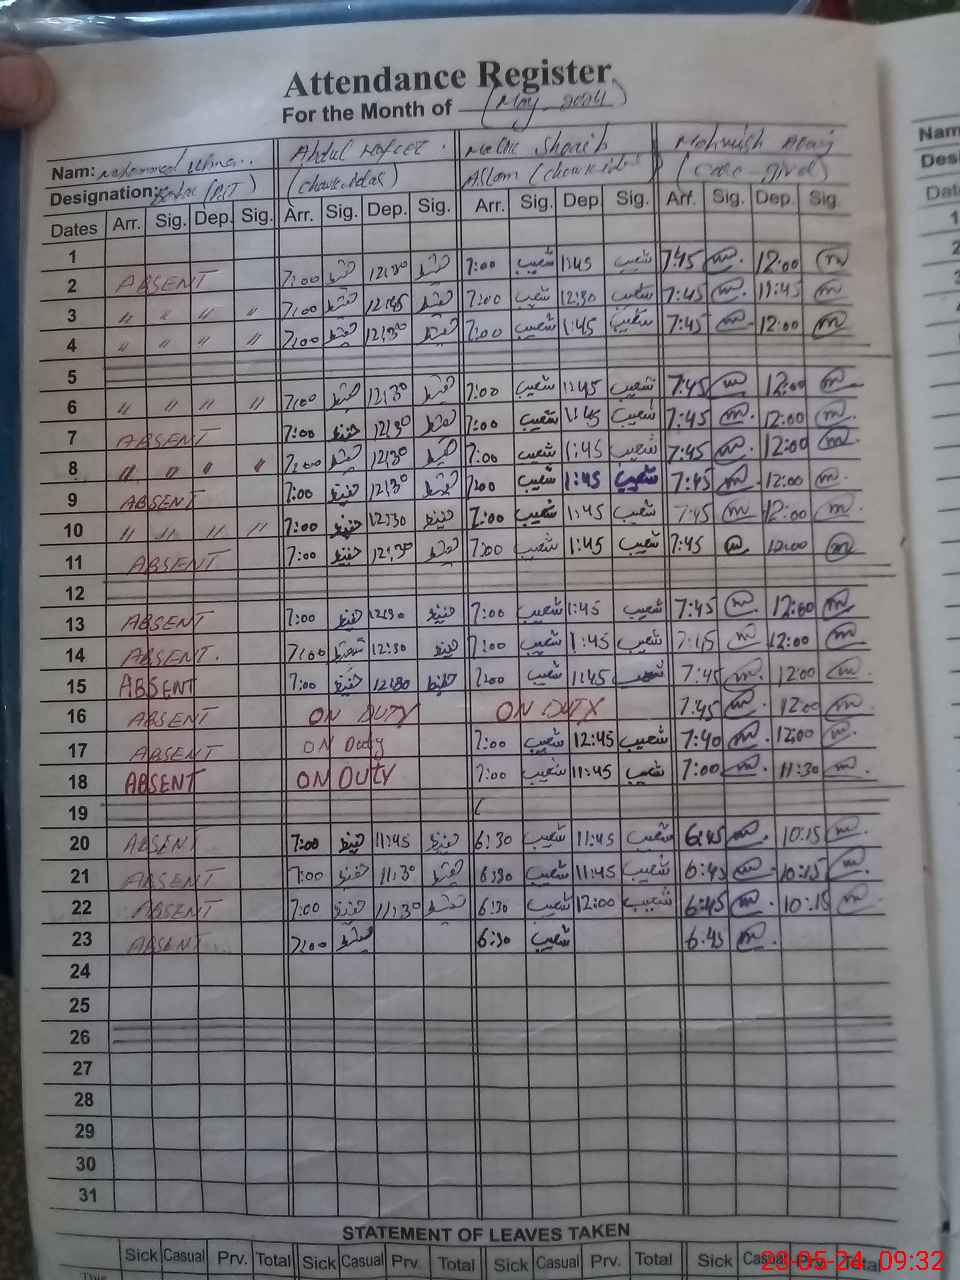 Attendance Register
For the Month of (May 2024)
Nam: Abdul Shoaib Mahwish
Designation: (chowkidar) Aslam (chowkidar) (Care-giver)
Dates Arr. Sig. Dep. Sig. Arr. Sig. Dep. Sig. Arr. Sig. Dep. Sig. Arr. Sig. Dep. Sig.
1
2 ABSENT 7:00 12:30 7:00 شعیب 1:45 شعیب 7:45 m 12:00 m
3 " " " " 7:00 12:45 7:00 شعیب 12:30 شعیب 7:45 m 11:45 m
4 " " " " 7:00 12:30 7:00 شعیب 1:45 شعیب 7:45 m 12:00 m
5
6 " " " " 7:00 12:30 7:00 شعیب 1:45 شعیب 7:45 m 12:00 m
7 ABSENT 7:00 حفیظ 12:30 7:00 شعیب 1:45 شعیب 7:45 m 12:00 m
8 " " " " 7:00 12:30 7:00 شعیب 1:45 شعیب 7:45 m 12:00 m
9 ABSENT 7:00 حفیظ 12:30 7:00 شعیب 1:45 شعیب 7:45 m 12:00 m
10 " " " " 7:00 حفیظ 12:30 حفیظ 7:00 شعیب 1:45 شعیب 7:45 m 12:00 m
11 ABSENT 7:00 حفیظ 12:30 7:00 شعیب 1:45 شعیب 7:45 m 12:00 m
12
13 ABSENT 7:00 حفیظ 12:30 حفیظ 7:00 شعیب 1:45 شعیب 7:45 m 12:00 m
14 ABSENT. 7:00 12:30 حفیظ 7:00 شعیب 1:45 شعیب 7:45 m 12:00 m
15 ABSENT 7:00 حفیظ 12:30 حفیظ 7:00 شعیب 1:45 شعیب 7:45 m 12:00 m
16 ABSENT ON DUTY ON DUTY 7:45 m 12:00 m
17 ABSENT ON Duty 7:00 شعیب 12:45 شعیب 7:40 m 12:00 m
18 ABSENT ON DUTY 7:00 شعیب 11:45 شعیب 7:00 m 11:30 m
19
20 ABSENT 7:00 حفیظ 11:45 حفیظ 6:30 شعیب 11:45 شعیب 6:45 m 10:15 m
21 ABSENT 7:00 حفیظ 11:30 6:30 شعیب 11:45 شعیب 6:45 m 10:15 m
22 ABSENT 7:00 حفیظ 11:30 6:30 شعیب 12:00 شعیب 6:45 m 10:15 m
23 ABSENT 7:00 6:30 شعیب 6:45 m
24
25
26
27
28
29
30
31
STATEMENT OF LEAVES TAKEN
Sick Casual Prv. Total Sick Casual Prv. Total Sick Casual Prv. Total Sick Casual Prv. Total
23-05-24 09:32